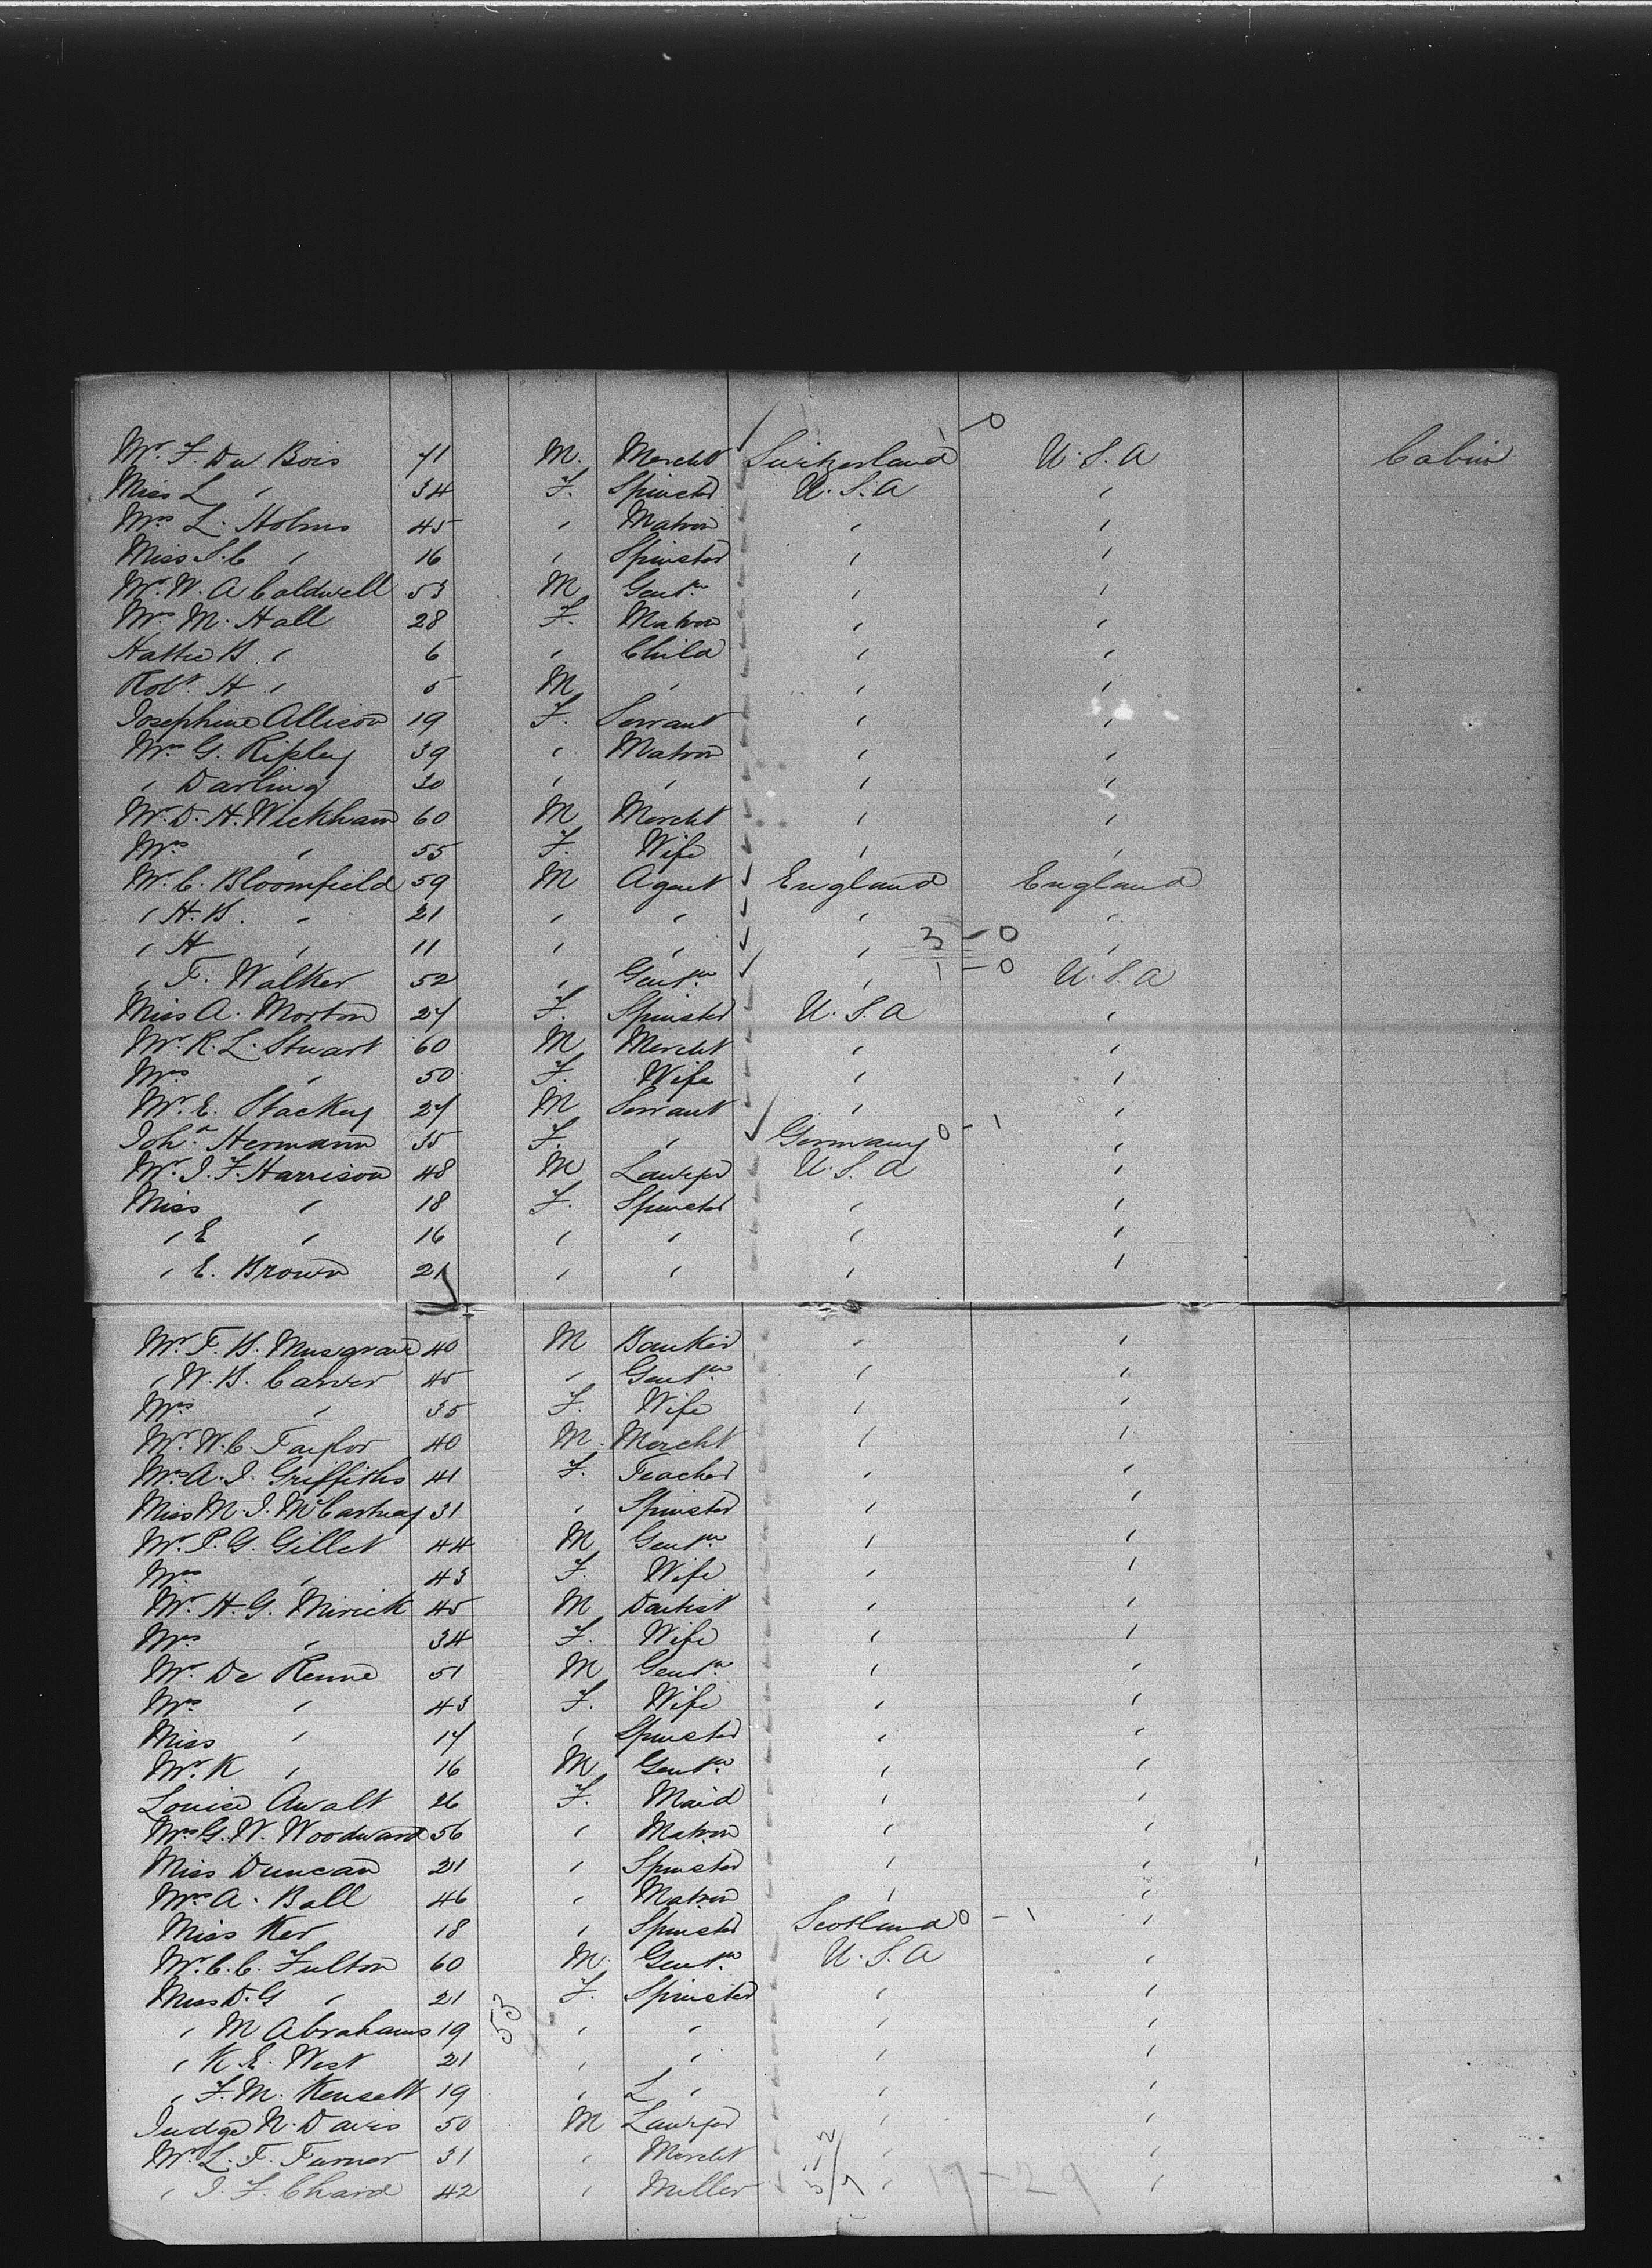 Mr. F. Du Bois 71 M. Mercht Switzerland 1-0 U.S.A Cabin
Miss L " 34 F. Spinster U.S.A "
Mrs L. Holms 45 " Matron " "
Miss S.C " 16 " Spinster " "
Mr. W. A Caldwell 53 M Gentn " "
Mrs M. Hall 28 F. Matron " "
Hattie B " 6 " Child " "
Robt. H " 5 M " " "
Josephine Allison 19 F. Servant " "
Mrs G. Ripley 39 " Matron " "
" Darling 30 " " " "
Mr. D. H. Wickham 60 M Mercht " "
Mrs " 55 F. Wife " "
Mr. C. Bloomfield 59 M Agent England England
" H.B. " 21 " " " "
" H " 11 " " " 3-0 "
" T. Walker 52 " Gentn " 1-0 U.S.A
Miss A. Morton 27 F. Spinster U.S.A "
Mr. R. L. Stuart 60 M Mercht " "
Mrs " 50 F. Wife " "
Mr. E. Stackey 27 M Servant " "
Joha Hermann 35 F. " Germany 0-1 "
Mr. J. F. Harrison 48 M Lawyer U.S.A "
Miss " 18 F. Spinster " "
" E " 16 " " " "
" E. Brown 21 " " " "
Mr. F. B. Musgrave 40 M Banker " "
" W. B. Carver 45 " Gentn " "
Mrs " 35 F. Wife " "
Mr. W. C. Taylor 40 M. Mercht " "
Mrs A. J. Griffiths 41 F. Teacher " "
Miss M. J. McCartney 31 " Spinster " "
Mr. P. G. Gillet 44 M Gentn " "
Mrs " 43 F. Wife " "
Mr. H. G. Mirick 45 M Dentist " "
Mrs " 34 F. Wife " "
Mr. De Renne 51 M Gentn " "
Mrs " 43 F. Wife " "
Miss " 17 " Spinster " "
Mr. K " 16 M Gentn " "
Louise Awalt 26 F. Maid " "
Mrs G. W. Woodward 56 " Matron " "
Miss Duncan 21 " Spinster " "
Mrs A. Ball 46 " Matron " "
Miss Ker 18 " Spinster Scotland 0-1 "
Mr. C. C. Fulton 60 M. Gentn U.S.A "
Miss D. G " 21 F. Spinster " "
" M Abrahams 19 53 " " " "
" K. E. West 21 " " " "
" F. M. Kensett 19 " " " "
Judge N. Davis 50 M Lawyer " "
Mr. L. T. Turner 31 " Mercht " "
" J. F. Chard 42 " Miller " 19-29 "